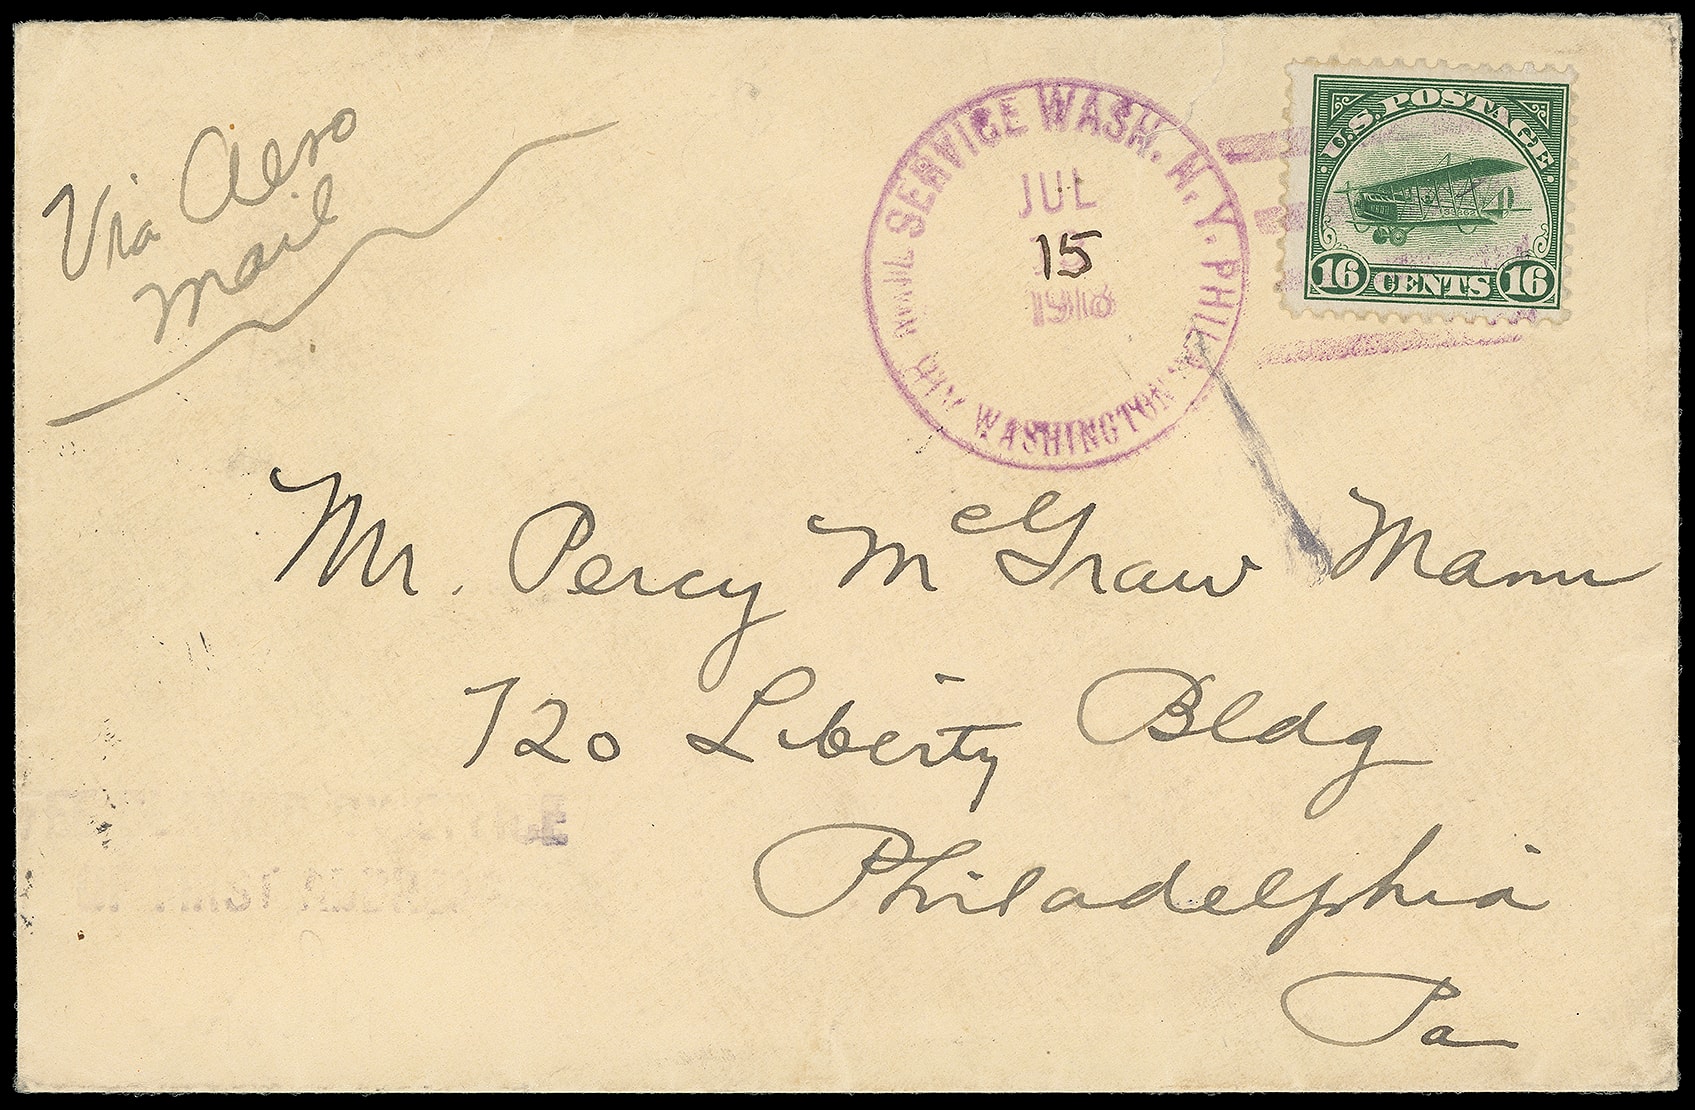 Via Aero
Mail
AIR MAIL SERVICE WASH. N.Y. PHILA
JUL
15
1918
WASHINGTON
U.S. POSTAGE
16 CENTS 16
Mr. Percy McGraw Mann
720 Liberty Bldg
Philadelphia
Pa